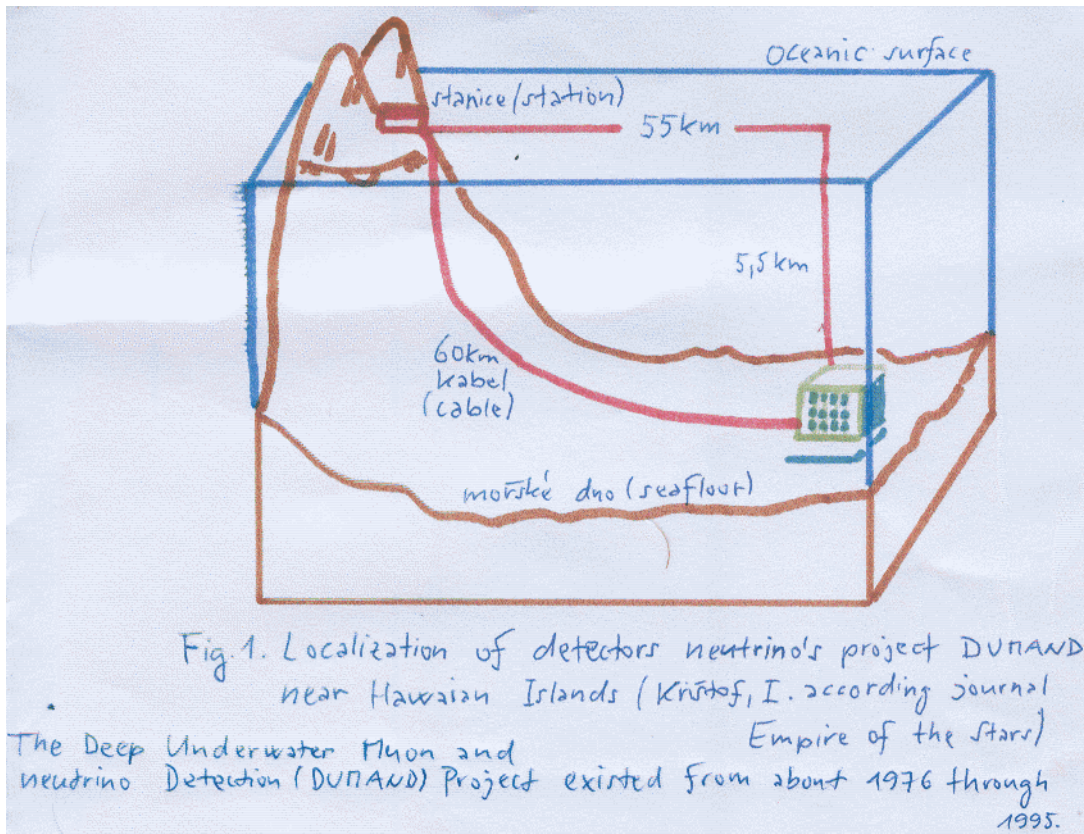 Oceanic surface
stanice/station)
55km
5,5km
60km
kabel
(cable)
mořské dno (seafloor)
Fig.1. Localization of detectors neutrino's project DUMAND
near Hawaian Islands (Krištof, I. according journal
Empire of the stars)
The Deep Underwater Muon and
neutrino Detection (DUMAND) Project existed from about 1976 through
1995.